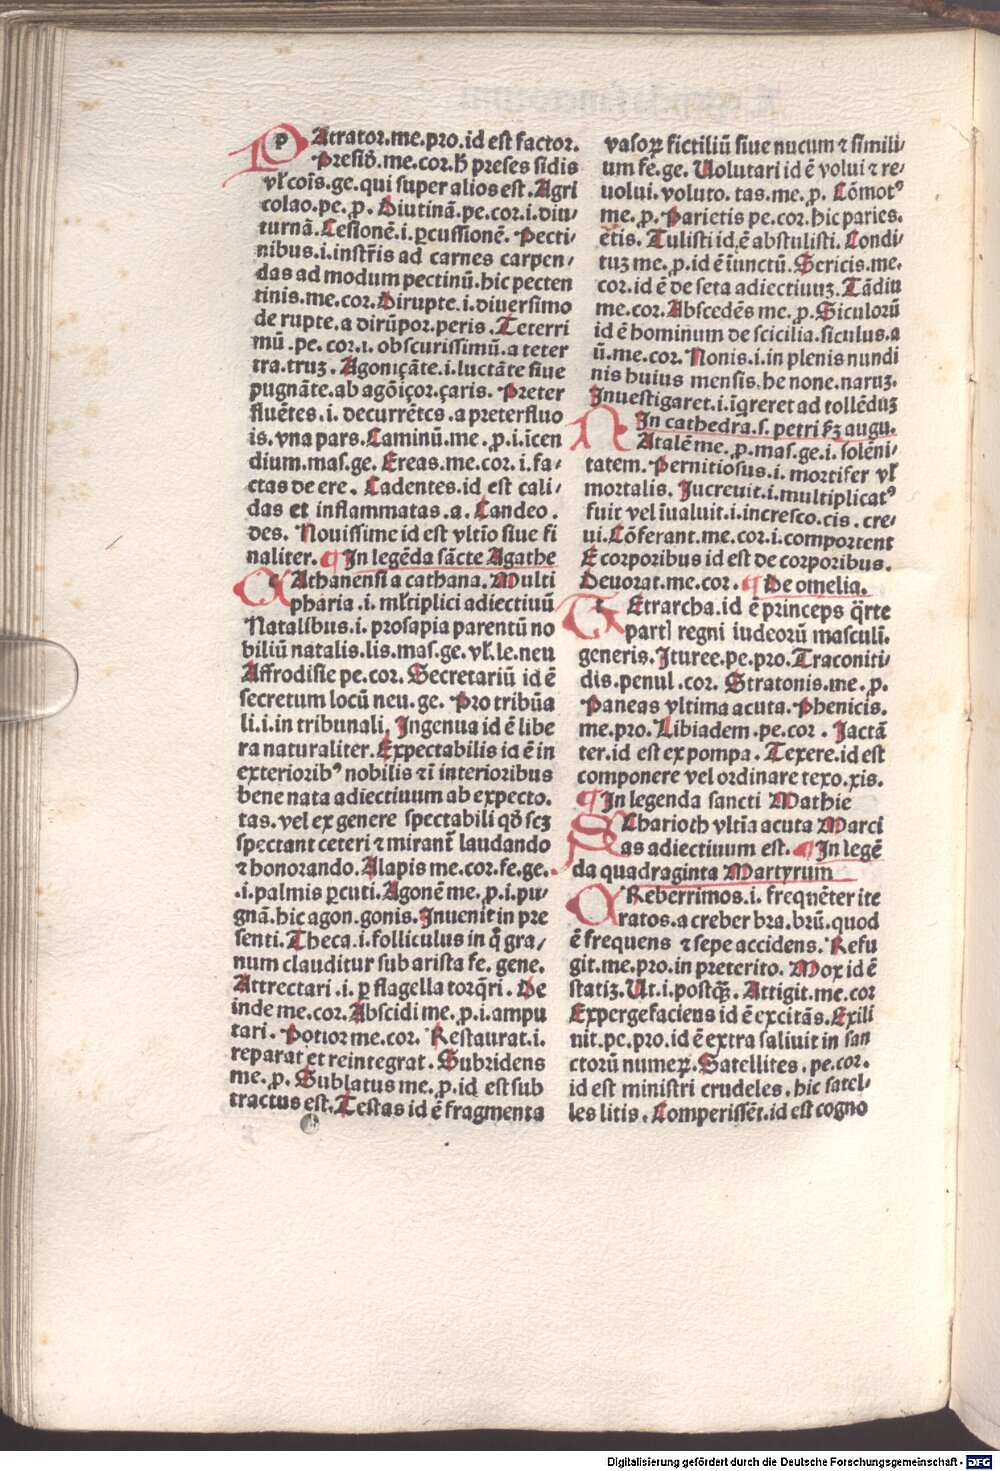 PAtrator.me.pro.id est factor.
Presid̄.me.cor.h̄ preses sidis
vl̓ coīs.ge.qui super alios est.Agri
colao.pe.ꝑ. Diutinā.pe.cor.i.diu/
turnā.Lesionē.i.ꝑcussionē. Pecti/
nibus.i.instr̄is ad carnes carpen/
das ad modum pectinū.hic pecten
tinis.me.cor.Dirupte.i.diuersimo
de rupte.a dirūpor.peris.Teterri
mū.pe.cor.i.obscurissimū.a teter
tra.truꝫ.Agoniçāte.i.luctāte siue
pugnāte.ab agōiçor.çaris. Preter
fluētes.i.decurrētes.a preterfluo
is.vna pars.Caminū.me.ꝓ.i.icen
dium.mas.ge.Ereas.me.cor.i.fa/
ctas de ere. Cadentes.id est cali/
das et inflammatas.a.Candeo.
des. Nouissime id est vltīo siue fi
naliter. ¶ In legēda sācte Agathe
cAthanensi a cathana.Multi
pharia.i.ml̓tiplici adiectiuū
Natalibus.i.prosapia parentū no
biliū natalis.lis.mas.ge.vl̓.le.neu
Affrodisie pe.cor.Secretariū id ē
secretum locū neu.ge.Pro tribūa
li.i.in tribunali.Ingenua id ē libe
ra naturaliter.Expectabilis id ē in
exteriorib⁹ nobilis ⁊ ī interioribus
bene nata adiectiuum ab expecto.
tas.vel ex genere spectabili qd̄ scꝫ
spectant ceteri ⁊ mirant̄ laudando
⁊ honorando.Alapis me.cor.fe.ge.
.i.palmis ꝑcuti.Agonē me.ꝓ.i.pu/
gnā.hic agon.gonis.Inuenit in pre
senti.Theca.i.folliculus in q̄ gra/
num clauditur sub arista fe.gene.
Attrectari.i.ꝑ flagella torq̄ri. De
inde me.cor.Abscidi me.ꝓ.i.ampu
tari. Potior me.cor. Restaurat.i.
reparat et reintegrat. Subridens
me.ꝓ. Sublatus me.ꝓ.id est sub
tractus est.Testas id ē fragmenta
vasoꝝ fictiliū siue nucum ⁊ simili/
um fe.ge.Uolutari id ē volui ⁊ re/
uolui.voluto.tas.me.ꝓ. Cōmot⁹
me.ꝓ.Parietis pe.cor.hic paries.
etis. Tulisti id ē abstulisti. Condi/
tuꝫ me.ꝓ.id ē īunctū.Sericis.me.
cor.id ē de seta adiectiuuꝫ.Tādiu
me.cor.Abscedēs me.ꝓ.Siculorū
id ē hominum de scicilia.siculus.a
ū.me.cor. Nonis.i.in plenis nundi
nis huius mensis.he none.naruꝫ.
Inuestigaret.i.īqreret ad tollēduꝫ
In cathedra.s.petri kꝫ augu.
NAtalē me.ꝓ.mas.ge.i.solēni/
tatem.Pernitiosus.i.mortifer vl̓
mortalis. Iucreuit.i.multiplicat⁹
fuit vel īualuit.i.incresco.cis.cre/
ui.Cōferant.me.cor.i.comportent
E corporibus id est de corporibus.
Deuorat.me.cor. ¶ De omelia.
tEtrarcha.id ē princeps q̄rte
part̓ regni iudeorū masculī.
generis.Ituree.pe.pro.Traconiti/
dis.penul.cor. Stratonis.me.ꝓ.
Paneas vltima acuta. Phenicis.
me.pro.Libiadem.pe.cor. Iactā
ter.id est ex pompa.Texere.id est
componere vel ordinare texo.xis.
¶ In legenda sancti Mathie
SCharioth vltīa acuta Marci
as adiectiuum est. ¶ In legē
da quadraginta Martyrum
CReberrimos.i.frequēter ite
ratos.a creber bra.brū.quod
ē frequens ⁊ sepe accidens.Refu
git.me.pro.in preterito. Mox id ē
statiꝫ.Ut.i.postq̄ꝫ. Attigit.me.cor
Expergefaciens id ē excitās.Exili
nit.pe.pro.id ē extra saliuit in san
ctorū numeꝝ.Satellites.pe.cor.
id est ministri crudeles.hic satel/
les litis. Comperissēt.id est cogno
Digitalisierung gefördert durch die Deutsche Forschungsgemeinschaft - DFG